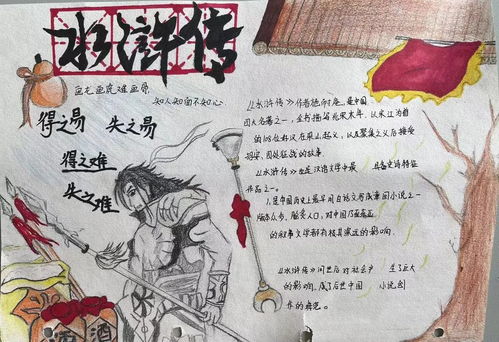 水浒传
画龙画虎难画骨
知人知面不知心
得之易
失之易
得之难
失之难
《水浒传》作者施耐庵,是中国
四大名著之一,全书描写北宋末年,以宋江为首
的108位好汉在梁山起义,以及聚集之义后接受
招安、四处征战的故事
《水浒传》也是汉语文学中最 具备史诗特征
作品之一。
1.是中国历史上最早用白话文写成章回小说之一
版本众多,脍炙人口,对中国乃至
的叙事文学都有极其深远的影响.
《水浒传》问世后对社会产 生了巨大
的影响,成了后世中国 小说创
作的典范。
酒
酒